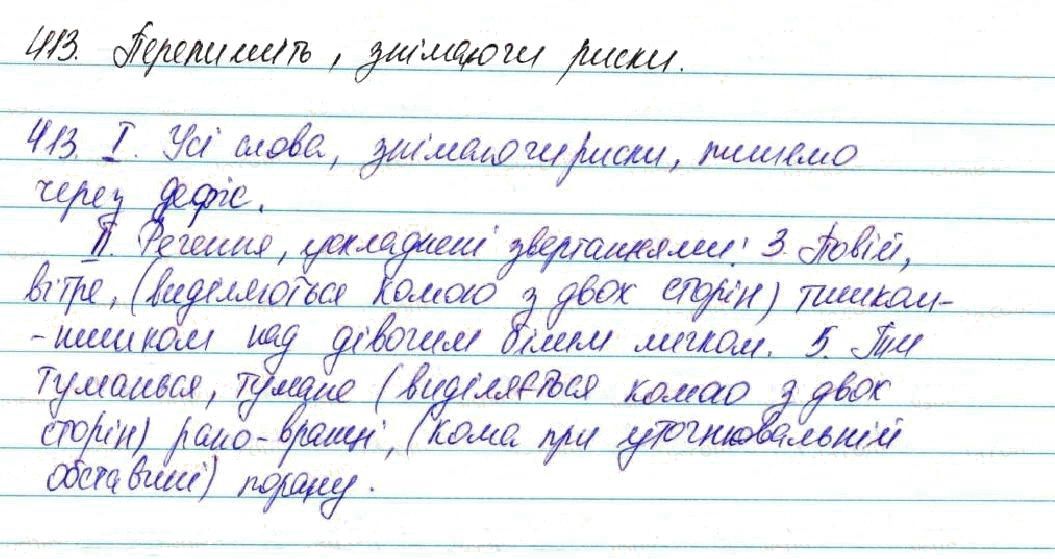 413. Перепишіть, знімаючи риски.
413. I. Усі слова, знімаючи риски, пишемо
через дефіс.
II. Речення, ускладнені звертаннями: 3. Повій,
вітре, (виділяються комою з двох сторін) тишком-
-нишком над дівочим білим личком. 5. Ти
туманься, тумане (виділяється комаю з двох
сторін) рано-вранці, (кома при уточнювальній
обставині) порану.